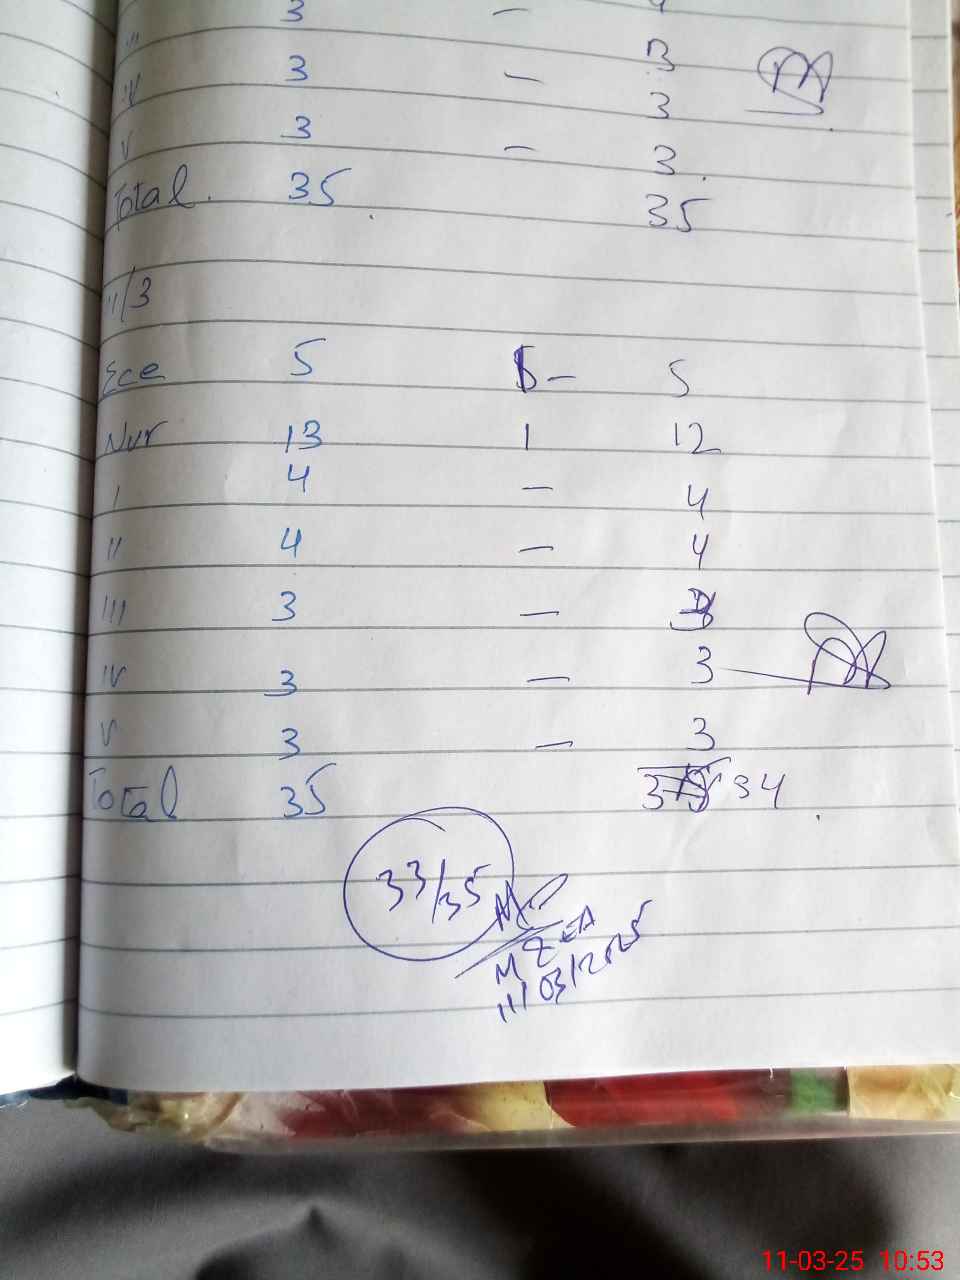 3 –
III 3 – 3
IV 3 – 3
V 3 – 3
Total. 35 35
11/3
Ece 5 – 5
Nur 13 1 12
I 4 – 4
II 4 – 4
III 3 – 3
IV 3 – 3
V 3 – 3
Total 35 34
33/35
11/03/2025
11-03-25 10:53